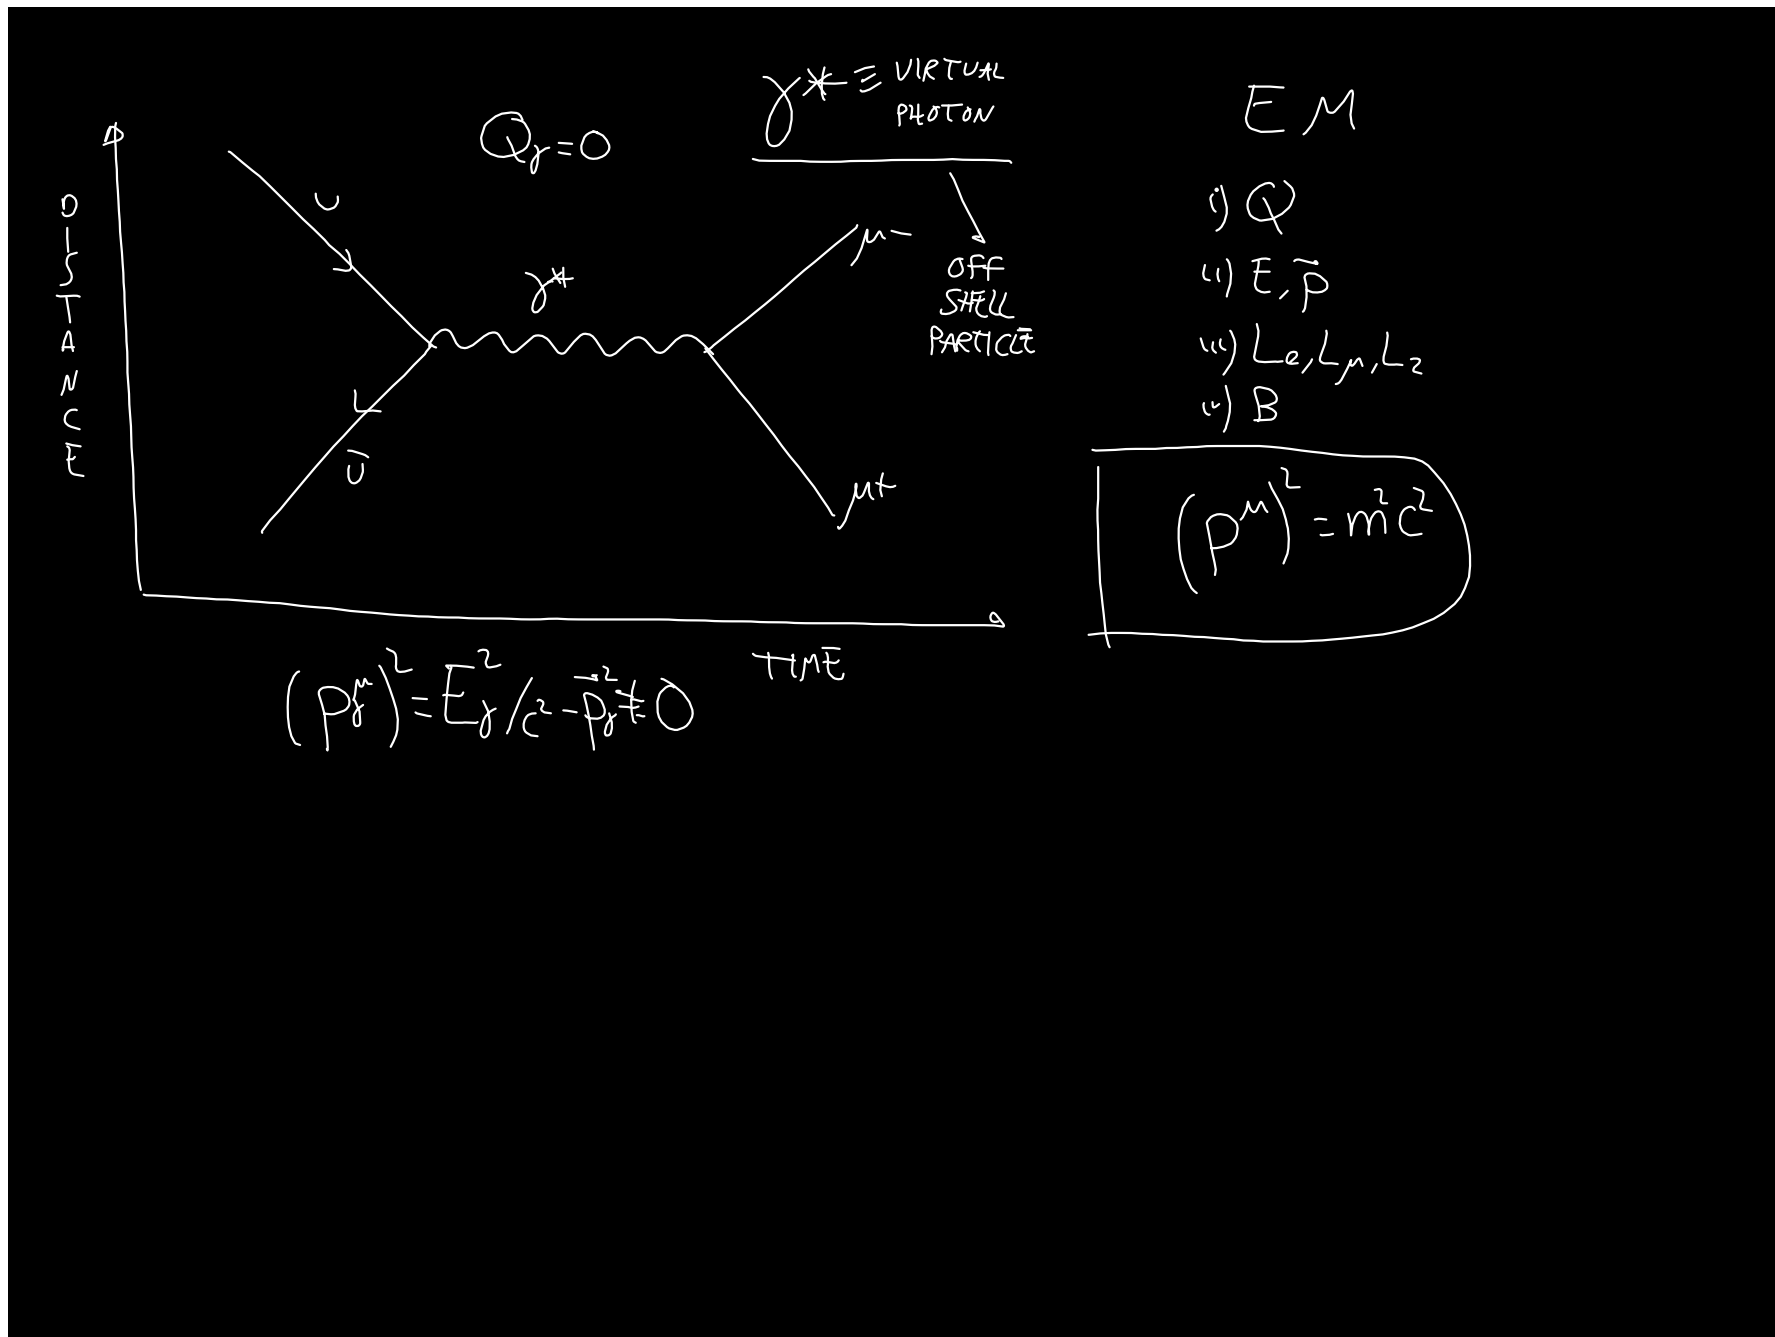 DISTANCE
Q_γ = 0
γ* ≡ VIRTUAL
PHOTON
OFF
SHELL
PARTICLE
u
γ*
ū
μ-
μ+
TIME
(p_γ^μ)² = E_γ²/c² - p⃗_γ² ≠ 0
EM
i) Q
ii) E, p⃗
iii) Le, Lμ, L_τ
iv) B
(p^μ)² = m²c²